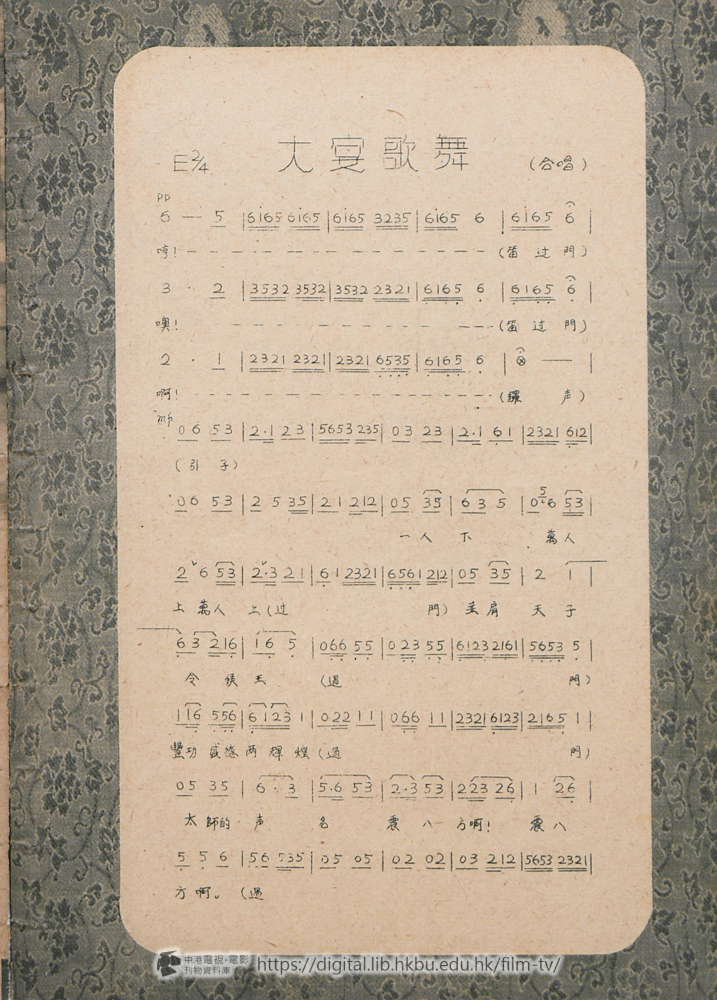 大宴歌舞
E 2/4
(合唱)
pp
6 — 5 | 6165 6165 | 6165 3235 | 6165 6 | 6165 6 |
哼! (笛过門)
3 · 2 | 3532 3532 | 3532 2321 | 6165 6 | 6165 6 |
噢! (笛过門)
2 · 1 | 2321 2321 | 2321 6535 | 6165 6 | ⊗ — |
啊! (鑼声)
06 53 | 2·1 23 | 5653 235 | 03 23 | 2·1 61 | 2321 612 |
(引子)
06 53 | 2 5 35 | 21 212 | 05 35 | 6 3 5 | 0 6 53 |
一人下 萬人
2 6 53 | 2·3 21 | 61 2321 | 6561 212 | 05 35 | 2 1 |
上萬人上(过門) 並肩天子
6 3 216 | 16 5 | 066 55 | 023 55 | 6123 2161 | 5653 5 |
令侯王 (過門)
116 556 | 6123 1 | 022 11 | 066 11 | 2321 6123 | 2165 1 |
豐功盛德两輝煌(過門)
05 35 | 6·3 | 5·6 53 | 2·3 53 | 223 26 | 1 26 |
太師的声名震八方啊! 震八
5 5 6 | 56 535 | 05 05 | 02 02 | 03 212 | 5653 2321 |
方啊。(過
中港電視·電影
刊物資料庫
https://digital.lib.hkbu.edu.hk/film-tv/